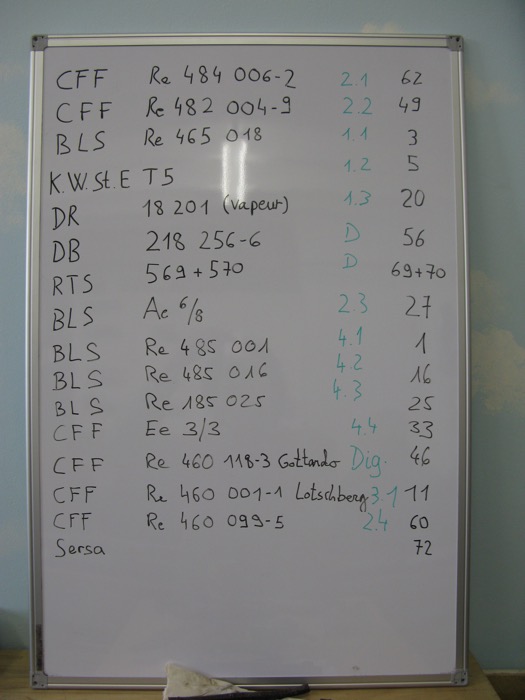 CFF Re 484 006-2 2.1 62
CFF Re 482 004-9 2.2 49
BLS Re 465 018 1.1 3
K.W.St.E T5 1.2 5
DR 18 201 (vapeur) 1.3 20
DB 218 256-6 D 56
RTS 569+570 D 69+70
BLS Ae 6/8 2.3 27
BLS Re 485 001 4.1 1
BLS Re 485 016 4.2 16
BLS Re 185 025 4.3 25
CFF Ee 3/3 4.4 33
CFF Re 460 118-3 Gottardo Dig. 46
CFF Re 460 001-1 Lotschberg 3.1 11
CFF Re 460 099-5 2.4 60
Sersa 72